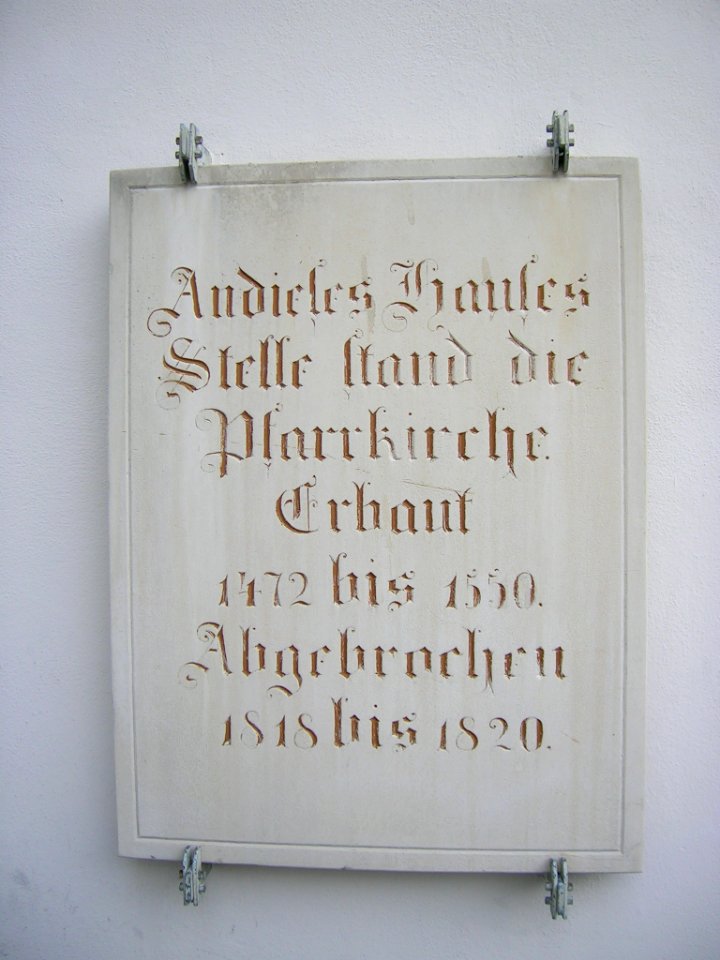 Andieses Hauses
Stelle stand die
Pfarrkirche.
Erbaut
1472 bis 1550.
Abgebrochen
1818 bis 1820.